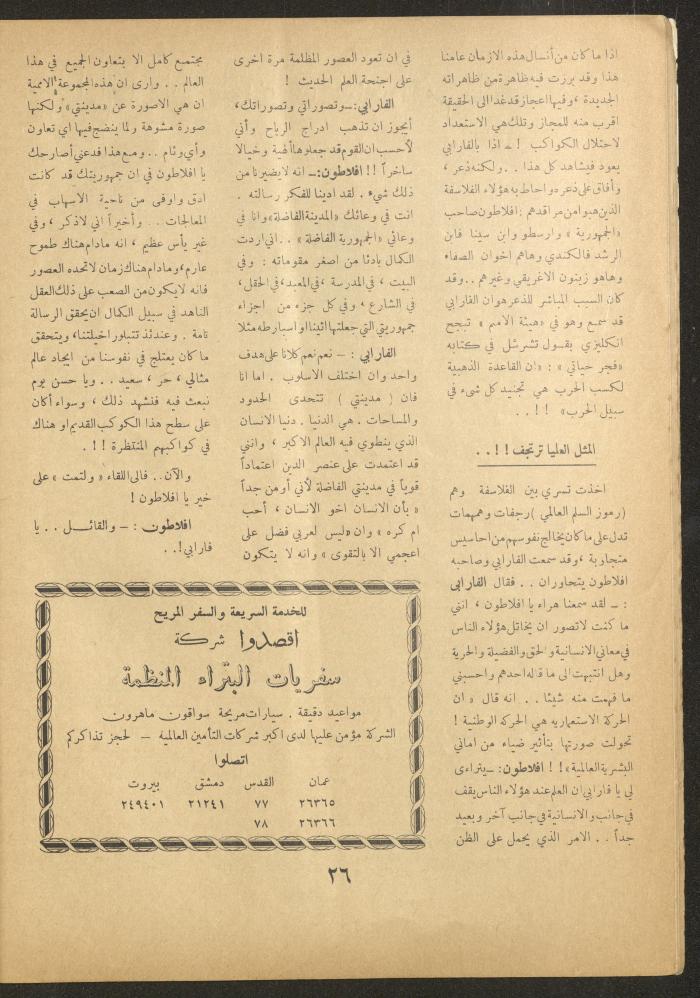 اذا ما كان من أنسال هذه الازمان عامنا
هذا وقد برزت فيه ظاهرة من ظاهراته
الجديدة ، وفيها اعجاز قد غدا الى الحقيقة
اقرب منه للمجاز وتلك هي الاستعداد
لاحتلال الكواكب ! ــ اذا بالفارابي
يعود فيشاهد كل هذا . . ولكنه ذعر ،
وأفاق على ذعره واحاط به هؤلاء الفلاسفة
الذين هبوا من مراقدهم : افلاطون صاحب
«الجمهورية » وارسطو وابن سينا فابن
الرشد فالكندي وهاهم اخوان الصفاء
وهاهو زينون الاغريقي وغيرهم . . وقد
كان السبب المباشر للذعر هو ان الفارابي
قد سمع وهو في «هيئة الامم » تبجح
انكليزي بقول تشرشل في كتابه
«فجر حياتي » : «ان القاعدة الذهبية
لكسب الحرب هي تجنيد كل شىء في
سبيل الحرب» !! . .
المثل العليا ترتجف ! ! . .
اخذت تسري بين الفلاسفة وهم
(رموز السلم العالمي ) رجفات وهمهمات
تدل على ما كان يخالج نفوسهم من احاسيس
متجاوبة ، وقد سمعت الفارابي وصاحبه
افلاطون يتحاوران . . فقال الفارابي
: ــ لقد سمعنا هراء يا افلاطون ، انني
ما كنت لاتصور ان يخاتل هؤلاء الناس
في معاني الانسانية والحق والفضيلة والحرية
وهل انتبهت الى ما قاله احدهم واحسبني
ما فهمت منه شيئا . . انه قال « ان
الحركة الاستعماريه هي الحركه الوطنية !
تحولت صورتها بتأثير ضياء من اماني
البشرية العالمية» !! افلاطون : ــ يتراءى
لي يا فارابي ان العلم عند هؤلاء الناس يقف
في جانب والانسانية في جانب آخر وبعيد
جداً . . الامر الذي يحمل على الظن
في ان تعود العصور المظلمة مرة اخرى
على اجنحة العلم الحديث !
الفارابي : ــ وتصوراتي وتصوراتك ،
أيجوز ان تذهب ادراج الرياح وأني
لأحسب ان القوم قد جعلوها ألهية وخيالا
ساخراً !! افلاطون : ــ انه لا يضيرنا من
ذلك شيء . لقد ادينا للفكر رسالته .
انت في وعائك «المدينة الفاضلة» وانا في
وعائي «الجمهورية الفاضلة » . . اني اردت
الكمال بادئا من اصغر مقوماته : وفي
البيت ، في المدرسة ، في المعبد ، في الحقل ،
في الشارع ، وفي كل جزء من اجزاء
جمهوريتي التي جعلتها اثينا او اسبارطه مثلا
الفارابي : ــ نعم نعم كلانا على هدف
واحد وان اختلف الاسلوب . اما انا
فان ( مدينتي ) تتحدى الحدود
والمساحات . هي الدنيا . دنيا الانسان
الذي ينطوي فيه العالم الاكبر ، وانني
قد اعتمدت على عنصر الدين اعتماداً
قوياً في مدينتي الفاضلة لأني أومن جداً
« بأن الانسان اخو الانسان ، أحب
ام كره » وان «ليس لعربي فضل على
اعجمي الا بالتقوى » وانه لا يتكون
مجتمع كامل الا بتعاون الجميع في هذا
العالم . . وارى ان هذه المجموعة الاممية
ان هي الاصورة عن «مدينتي» ولكنها
صورة مشوهة ولما ينضج فيها اي تعاون
وأي وئام . . ومع هذا فدعني أصارحك
يا افلاطون في ان جمهوريتك قد كانت
ادق واوفى من ناحية الاسهاب في
المعالجات . . وأخيراً اني لاذكر ، وفي
غير يأس عظيم ، انه مادام هناك طموح
عارم ، ومادام هناك زمان لاتحده العصور
فانه لايكون من الصعب على ذلك العقل
الناهد في سبيل الكمال ان يحقق الرسالة
تامة . وعندئذ تتبلور اخيلتنا ، ويتحقق
ما كان يعتلج في نفوسنا من ايجاد عالم
مثالي ، حر ، سعيد . . ويا حسن يوم
نبعث فيه فنشهد ذلك ، وسواء أكان
على سطح هذا الكوكب القديم او هناك
في كواكبهم المنتظرة !! .
والآن . . فالى اللقاء « ولتمت » على
خير يا افلاطون !
افلاطون : ــ والقائل . . يا
فارابي ! . .
للخدمة السريعة والسفر المريح
اقصدوا شركة
سفريات البتراء المنظمة
مواعيد دقيقة . سيارات مريحة سواقون ماهرون
الشركة مؤمن عليها لدى اكبر شركات التأمين العالميه ــ لحجز تذاكركم
اتصلوا
عمان القدس دمشق بيروت
٢٦٣٦٥ ٧٧ ٢١٢٤١ ٢٤٩٤٠١
٢٦٣٦٦ ٧٨
٢٦